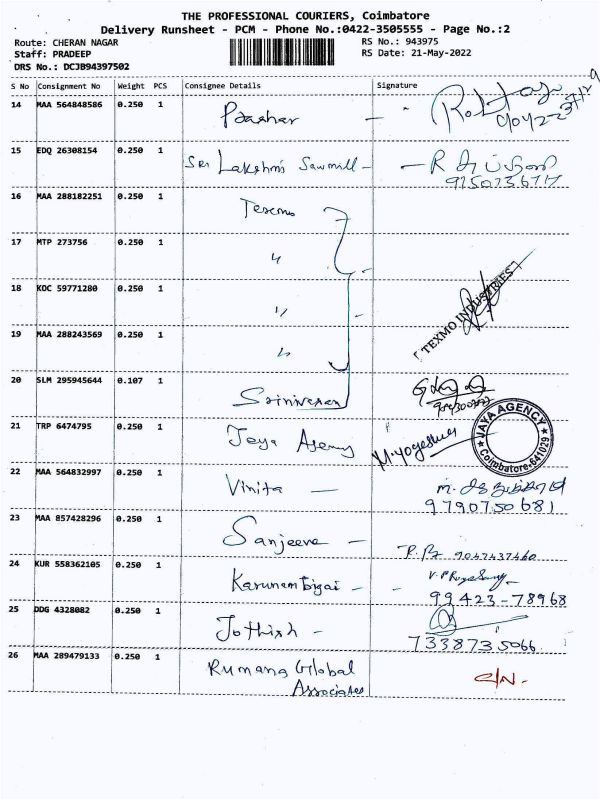 THE PROFESSIONAL COURIERS, Coimbatore
Delivery Runsheet - PCM - Phone No.:0422-3505555 - Page No.:2
Route: CHERAN NAGAR
RS No.: 943975
Staff: PRADEEP
RS Date: 21-May-2022
DRS No.: DCJB94397502
S No Consignment No Weight PCS Consignee Details Signature
14 MAA 564848586 0.250 1
15 EDQ 26308154 0.250 1 Sri Lakshmi Sawmill - R
9150736717
16 MAA 288182251 0.250 1 Texmo
17 MTP 273756 0.250 1 "
18 KDC 59771280 0.250 1 "
TEXMO INDUSTRIES
19 MAA 288243569 0.250 1 "
20 SLM 295945644 0.107 1 Srinivasan
21 TRP 6474795 0.250 1 Jeya Agency M.Yogeshwa
JAYA AGENCY
Coimbatore-641029
22 MAA 564832997 0.250 1 Vinita -
9790750681
23 MAA 857428296 0.250 1 Sanjeeve -
9047437460
24 KUR 558362105 0.250 1 Karunambigai -
99423-78968
25 DDG 4328082 0.250 1 Jothish -
7338735066
26 MAA 289479133 0.250 1 Rumang Global
Associates
C/N.